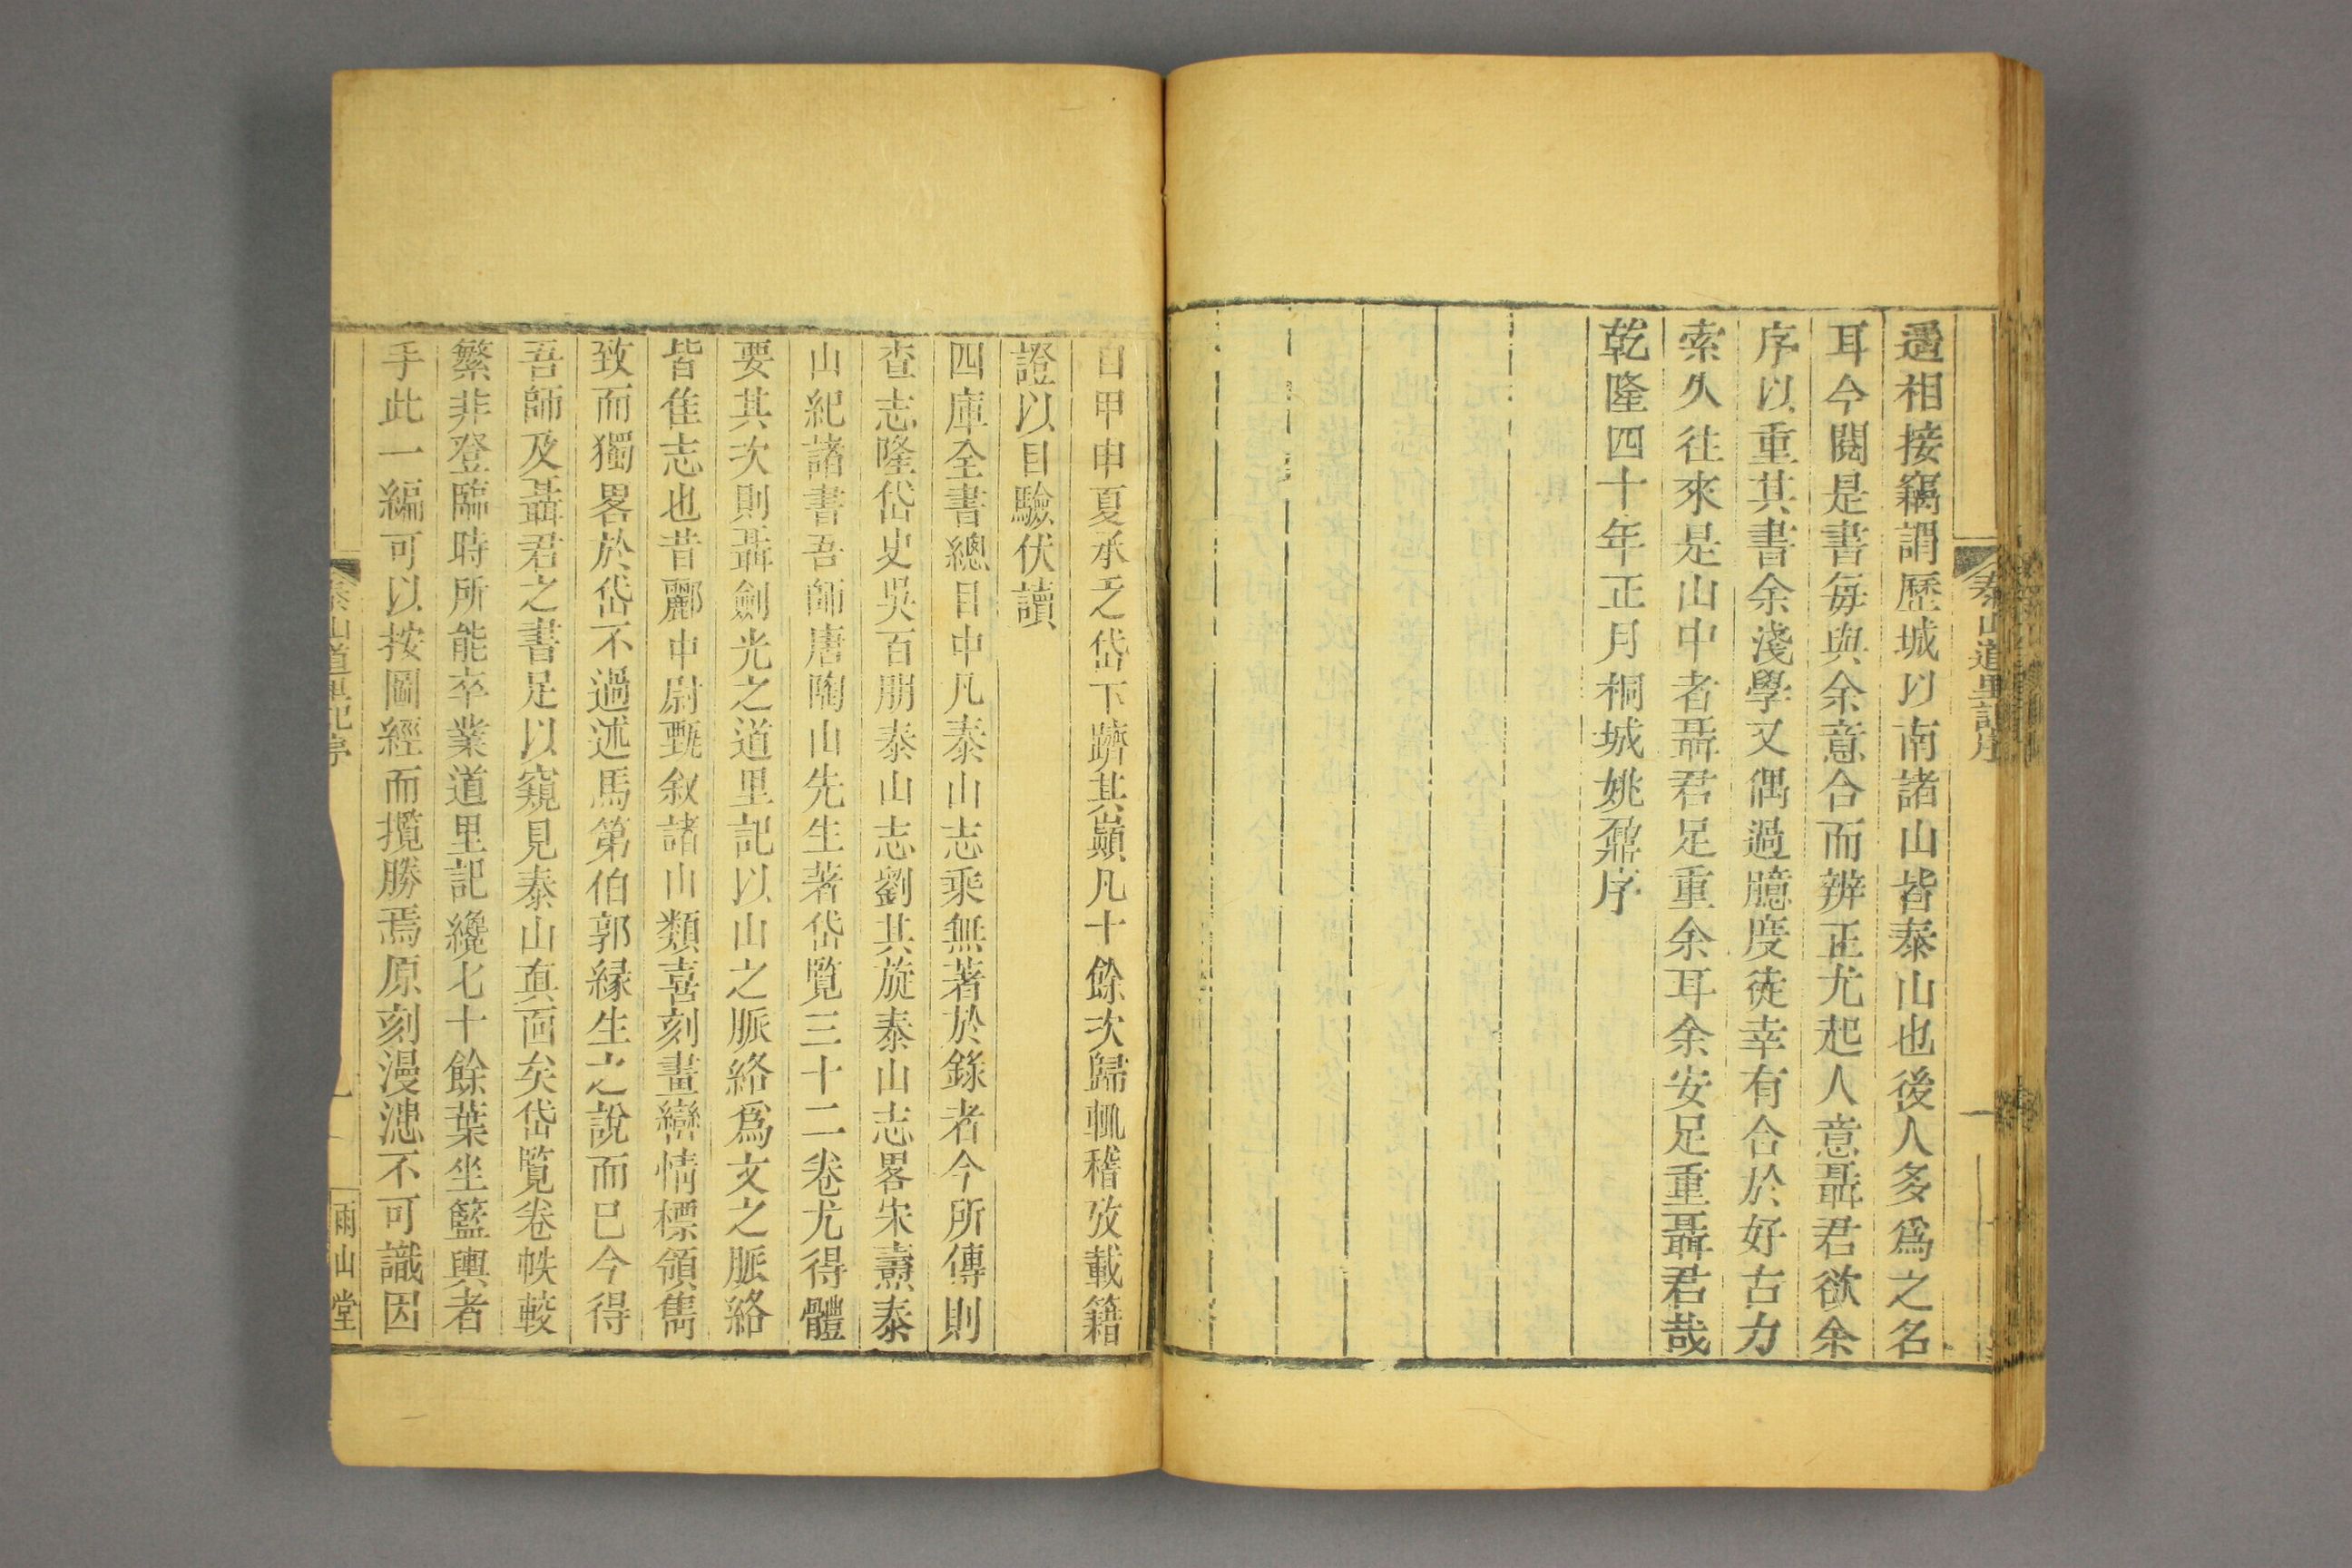 泰山道里記序
一
遇相接竊謂歷城以南諸山皆泰山也後人多爲之名
耳今閱是書每與余意合而辨正尤起人意聶君欲余
序以重其書余淺學又偶過臆度徒幸有合於好古力
索久往來是山中者聶君足重余耳余安足重聶君哉
乾隆四十年正月桐城姚鼐序
自甲申夏承乏岱下躋其巔凡十餘次歸輒稽攷載籍
證以目驗伏讀
四庫全書總目中凡泰山志乘無著於錄者今所傳則
查志隆岱史吳百朋泰山志劉其旋泰山志畧宋燾泰
山紀諸書吾師唐陶山先生著岱覽三十二卷尤得體
要其次則聶劍光之道里記以山之脈絡爲文之脈絡
皆隹志也昔酈中尉甄叙諸山類喜刻畫巒情標領雋
致而獨畧於岱不過述馬第伯郭緣生之說而已今得
吾師及聶君之書足以窺見泰山真面矣岱覽卷帙較
繁非登臨時所能卒業道里記纔七十餘葉坐籃輿者
手此一編可以按圖經而攬勝焉原刻漫漶不可識因
泰山道里記序
一
雨山堂